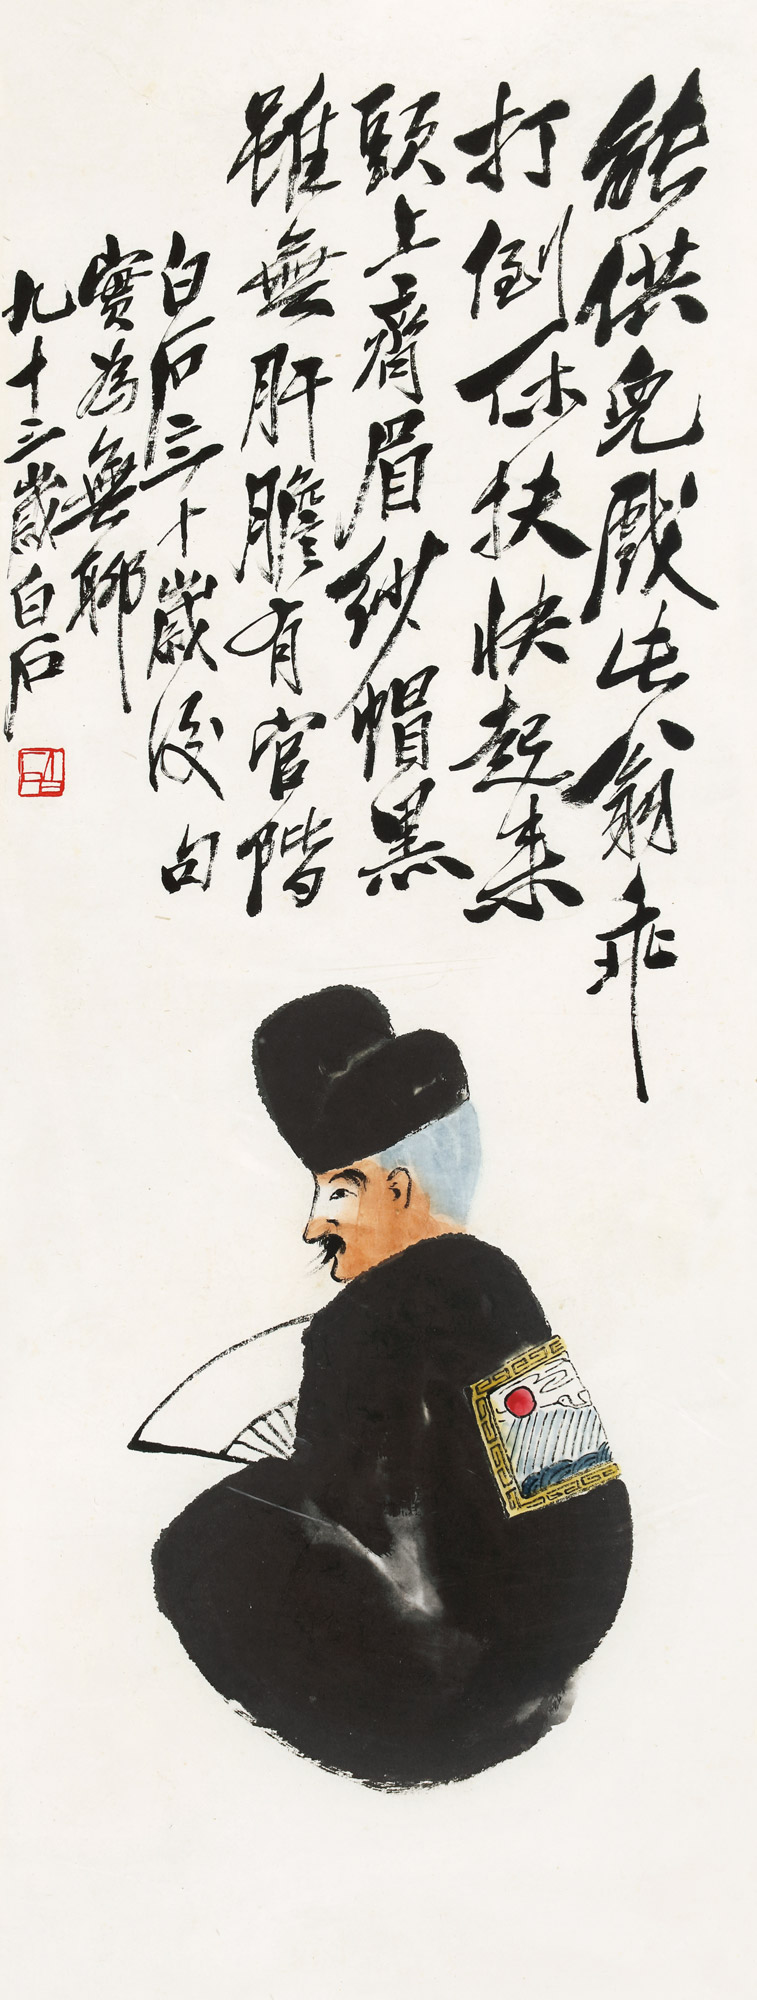 能供兒戲此翁乖
打倒休扶快起來
頭上齊眉紗帽黑
雖無肝膽有官階
白石三十歲後句
實為無聊
九十三歲白石